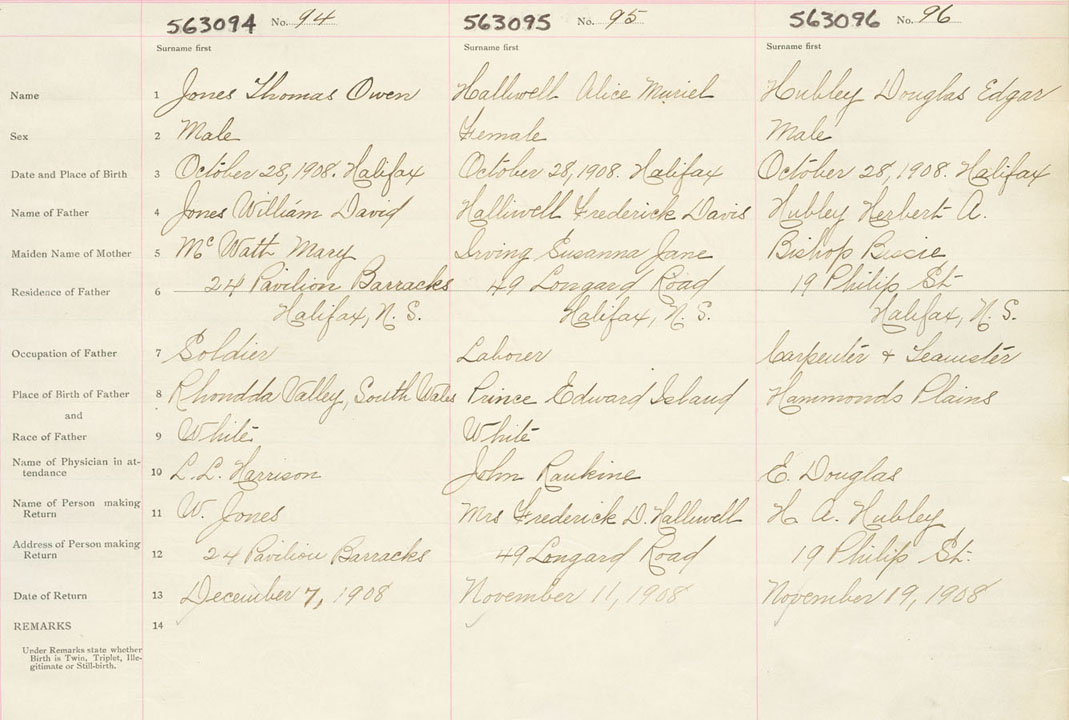 563094 No. 94 563095 No. 95 563096 No. 96
Surname first Surname first Surname first
Name 1 Jones Thomas Owen Halliwell Alice Muriel Hubley Douglas Edgar
Sex 2 Male Female Male
Date and Place of Birth 3 October 28, 1908. Halifax October 28, 1908. Halifax October 28, 1908. Halifax
Name of Father 4 Jones William David Halliwell Frederick Davis Hubley Herbert A.
Maiden Name of Mother 5 Mc Watt Mary Irving Susanna Jane Bishop Bessie
Residence of Father 6 24 Pavilion Barracks 49 Longard Road 19 Philip St.
Halifax, N. S. Halifax, N. S. Halifax, N. S.
Occupation of Father 7 Soldier Laborer Carpenter + Teamster
Place of Birth of Father 8 Rhondda Valley, South Wales Prince Edward Island Hammonds Plains
and
Race of Father 9 White White
Name of Physician in at-
tendance 10 L. L. Harrison John Rankine E. Douglas
Name of Person making
Return 11 W. Jones Mrs Frederick D. Halliwell H. A. Hubley
Address of Person making
Return 12 24 Pavilion Barracks 49 Longard Road 19 Philip St.
Date of Return 13 December 7, 1908 November 11, 1908 November 19, 1908
REMARKS 14
Under Remarks state whether
Birth is Twin, Triplet, Ille-
gitimate or Still-birth.